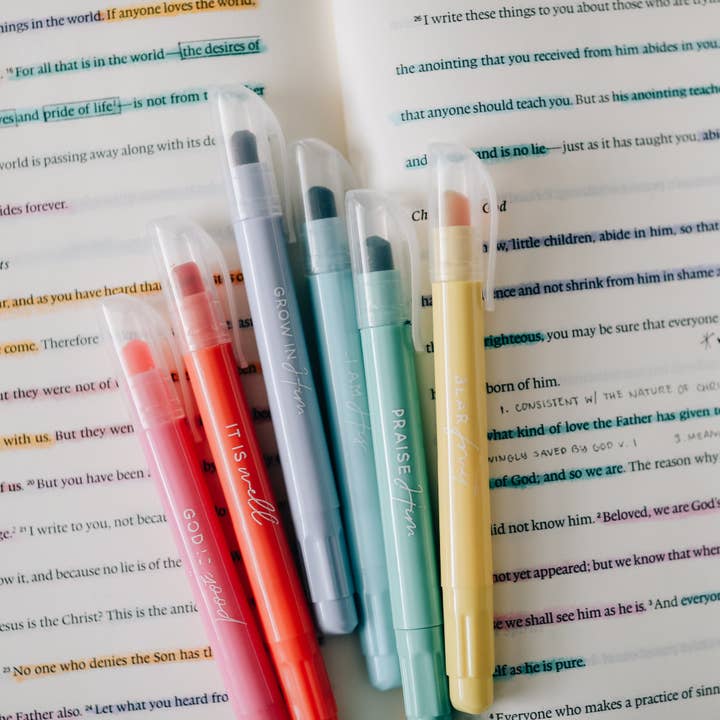 things in the world. If anyone loves the world,
16 For all that is in the world—the desires of
eyes and pride of life—is not from t
world is passing away along with its d
ides forever.
ar, and as you have heard tha
come. Therefore
ut they were not of
with us. But they wer
of us. 20 But you have been
21 I write to you, not becau
ow it, and because no lie is of the
esus is the Christ? This is the antic
23 No one who denies the Son has t
he Father also. 24 Let what you heard fro
26 I write these things to you about those who are
the anointing that you received from him abides in you.
that anyone should teach you. But as his anointing teache
and is no lie—just as it has taught you, abi
God
little children, abide in him, so that
ence and not shrink from him in shame
righteous, you may be sure that everyone
born of him.
1. CONSISTENT W/ THE NATURE OF
what kind of love the Father has given t
INGLY SAVED BY GOD V. 1
of God; and so we are. The reason why
did not know him. 2 Beloved, we are God's
not yet appeared; but we know that whe
e we shall see him as he is. 3 And everyo
elf as he is pure.
4 Everyone who makes a practice of sinn
GOD IS good
IT IS well
GROW IN Him
I AM His
PRAISE Him